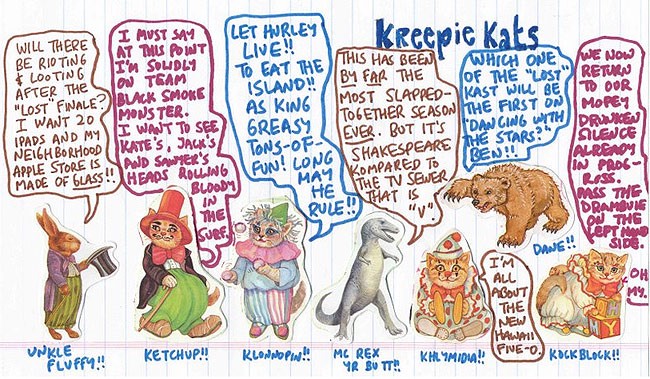 Kreepie Kats
WILL THERE
BE RIOTING
& LOOTING
AFTER THE
"LOST" FINALE?
I WANT 20
IPADS AND MY
NEIGHBORHOOD
APPLE STORE IS
MADE OF GLASS!!
I MUST SAY
AT THIS POINT
I'M SOLIDLY
ON TEAM
BLACK SMOKE
MONSTER.
I WANT TO SEE
KATE'S, JACK'S
AND SAWYER'S
HEADS ROLLING
BLOODY
IN THE
SURF.
LET HURLEY
LIVE!!
TO EAT THE
ISLAND!!
AS KING
GREASY
TONS-OF-
FUN! LONG
MAY
HE
RULE!!
THIS HAS BEEN
BY FAR THE
MOST SLAPPED-
TOGETHER SEASON
EVER. BUT IT'S
SHAKESPEARE
KOMPARED TO
THE TV SEWER
THAT IS
"V"
WHICH ONE
OF THE "LOST"
KAST WILL BE
THE FIRST ON
"DANCING WITH
THE STARS?"
BEN!!
WE NOW
RETURN
TO OUR
MOPEY
DRUNKEN
SILENCE
ALREADY
IN PROG-
ROSS.
PASS THE
DRAMBUIE
ON THE
LEFT HAND
SIDE.
I'M
ALL
ABOUT
THE
NEW
HAWAII
FIVE-O.
OH
MY.
DANE!!
UNKLE
FLUFFY!!
KETCHUP!!
KLONNOPIN!!
MC REX
YR BUTT!!
KHLYMIDIA!!
KOCKBLOCK!!